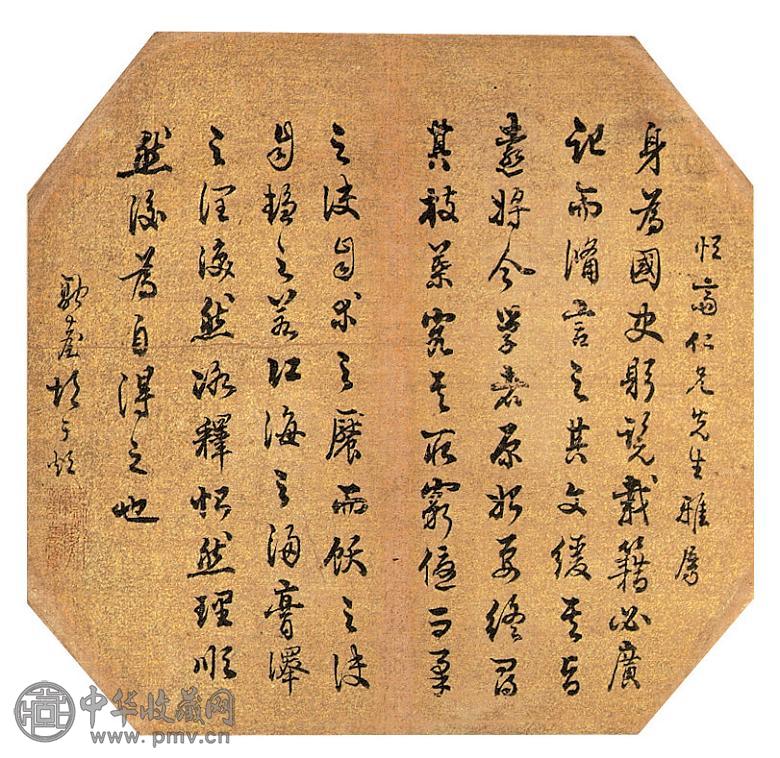 齋仁兄先生雅屬
身為國史躬覽載籍必廣
記而備言之其文緩其旨
遠將令學者原始要終尋
其枝葉究其所窮優而柔
之使自求之饜而飫之使
自趨之若江海之浸膏澤
之潤渙然冰釋怡然理順
然後為自得之也
中华收藏网
www.pmv.cn